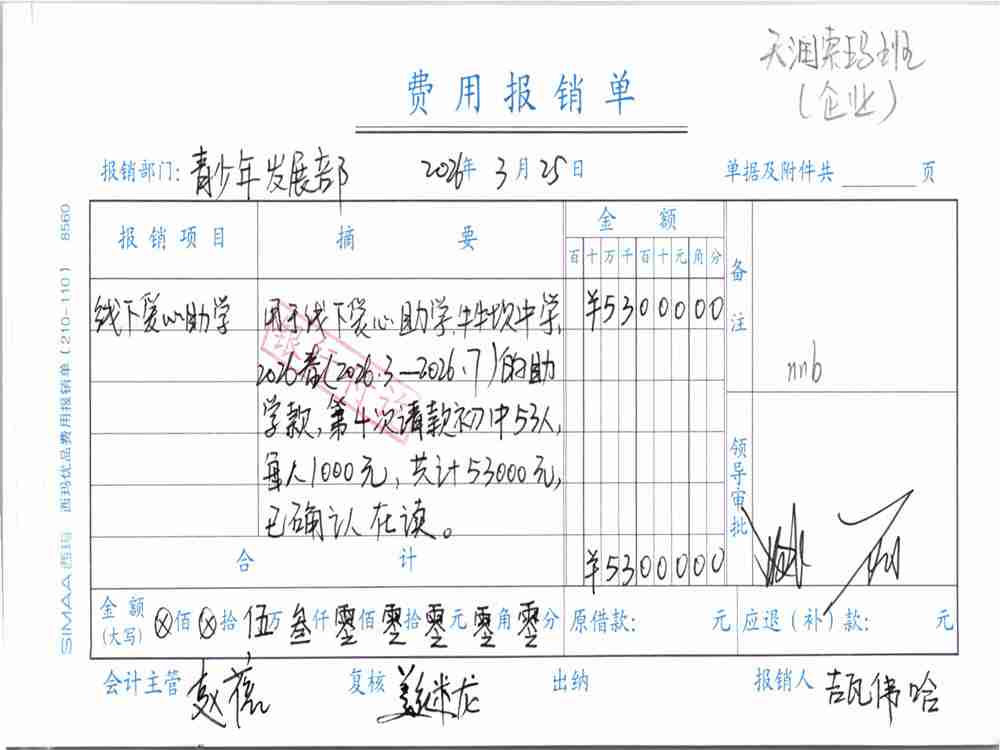 天润索玛班
(企业)
费用报销单
报销部门: 青少年发展部 2026年 3月25日 单据及附件共 页
报销项目 摘要 金额 备注
百十万千百十元角分
线下爱心助学 用于线下爱心助学牛牛坝中学, ¥5300000
2026春(2026.3—2026.7)的助
学款,第4次请款初中53人,
每人1000元,共计53000元,
已确认在读。
nnb
领导审批
合计 ¥5300000
金额(大写) ⊗佰⊗拾伍万叁仟零佰零拾零元零角零分 原借款: 元 应退(补)款: 元
会计主管 复核 出纳 报销人 吉瓦伟哈
SIMAA西玛 西玛优品费用报销单(210-110) 8560